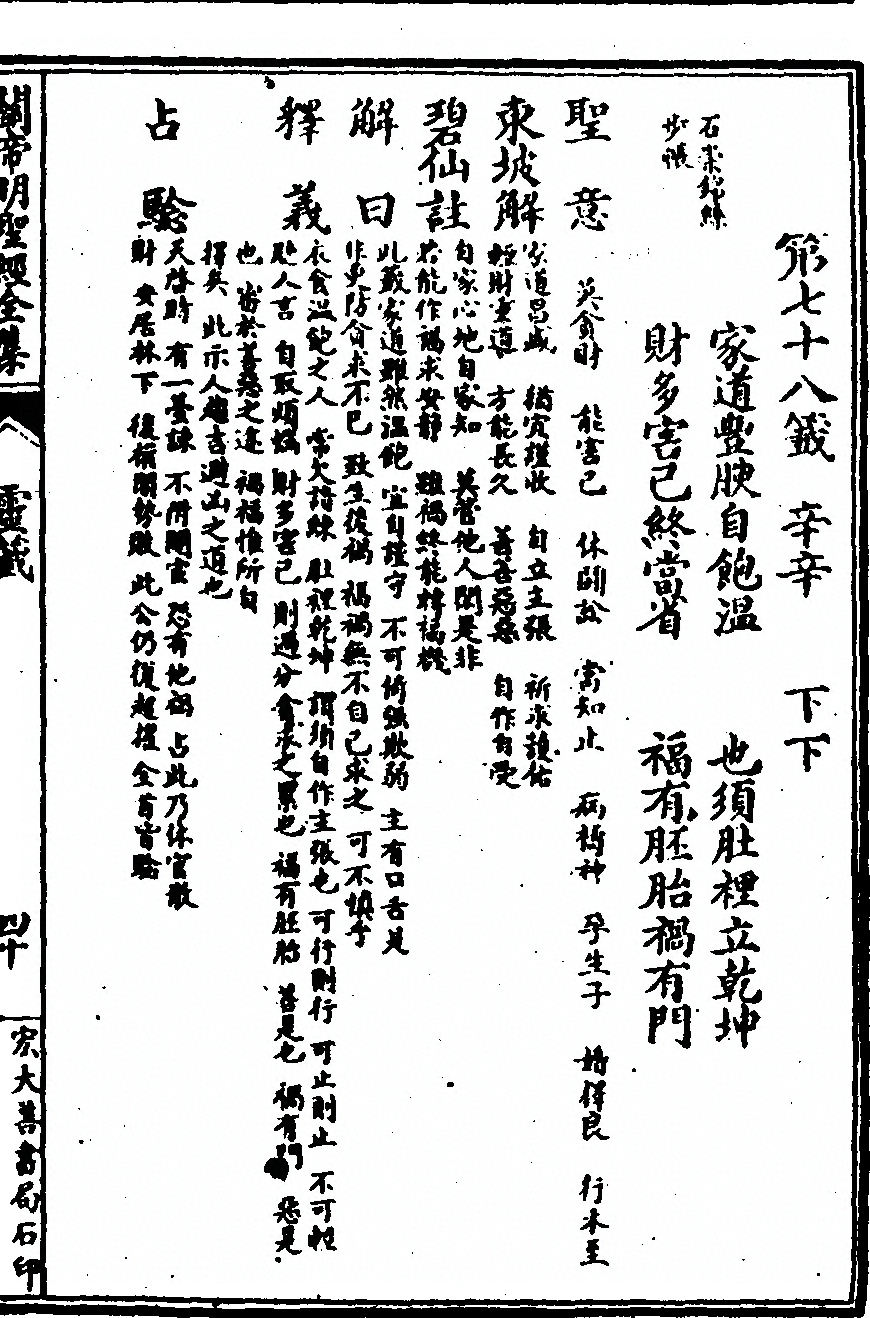 第七十八籤　辛辛　下下
石崇錦絲
步帳
家道豐腴自飽溫　也須肚裡立乾坤
財多害己終當省　福有胚胎禍有門
聖意　莫貪財　能害己　休鬭訟　當知止　病禱神　孕生子　婚擇良　行未至
東坡解　家道昌盛　猶宜謹收　自立主張　祈求護佑
輕財重道　方能長久　善善惡惡　自作自受
碧仙註　自家心地自家知　莫管他人閒是非
若能作福求安靜　雖禍終能轉福機
解曰　此籤家道雖然溫飽　宜自謹守　不可倚強欺弱　主有口舌是
非更防貪求不已　致生後禍　福禍無不自己求之　可不慎乎
釋義　衣食溫飽之人　常欠諳練　肚裡乾坤　謂須自作主張也　可行則行　可止則止　不可輕
聽人言　自取煩惱　財多害己　則過分貪求之累也　福有胚胎　善是也　禍有門　惡是
也　審於善惡之途　禍福惟所自
擇矣　此示人趨吉避凶之道也
占驗　天啓時　有一臺諫　不附閹宦　恐有他禍　占此乃休官散
財　安居林下　後稍閹勢敗　此公仍復超擢　全首皆驗
關帝明聖經全集
靈籤
四十
宏大善書局石印